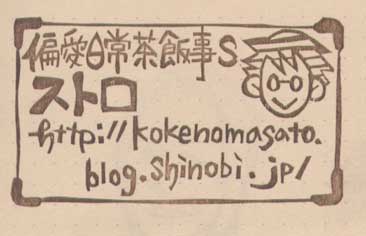 偏愛日常茶飯事S
ストロ
http://kokenomasato.
blog.shinobi.jp/